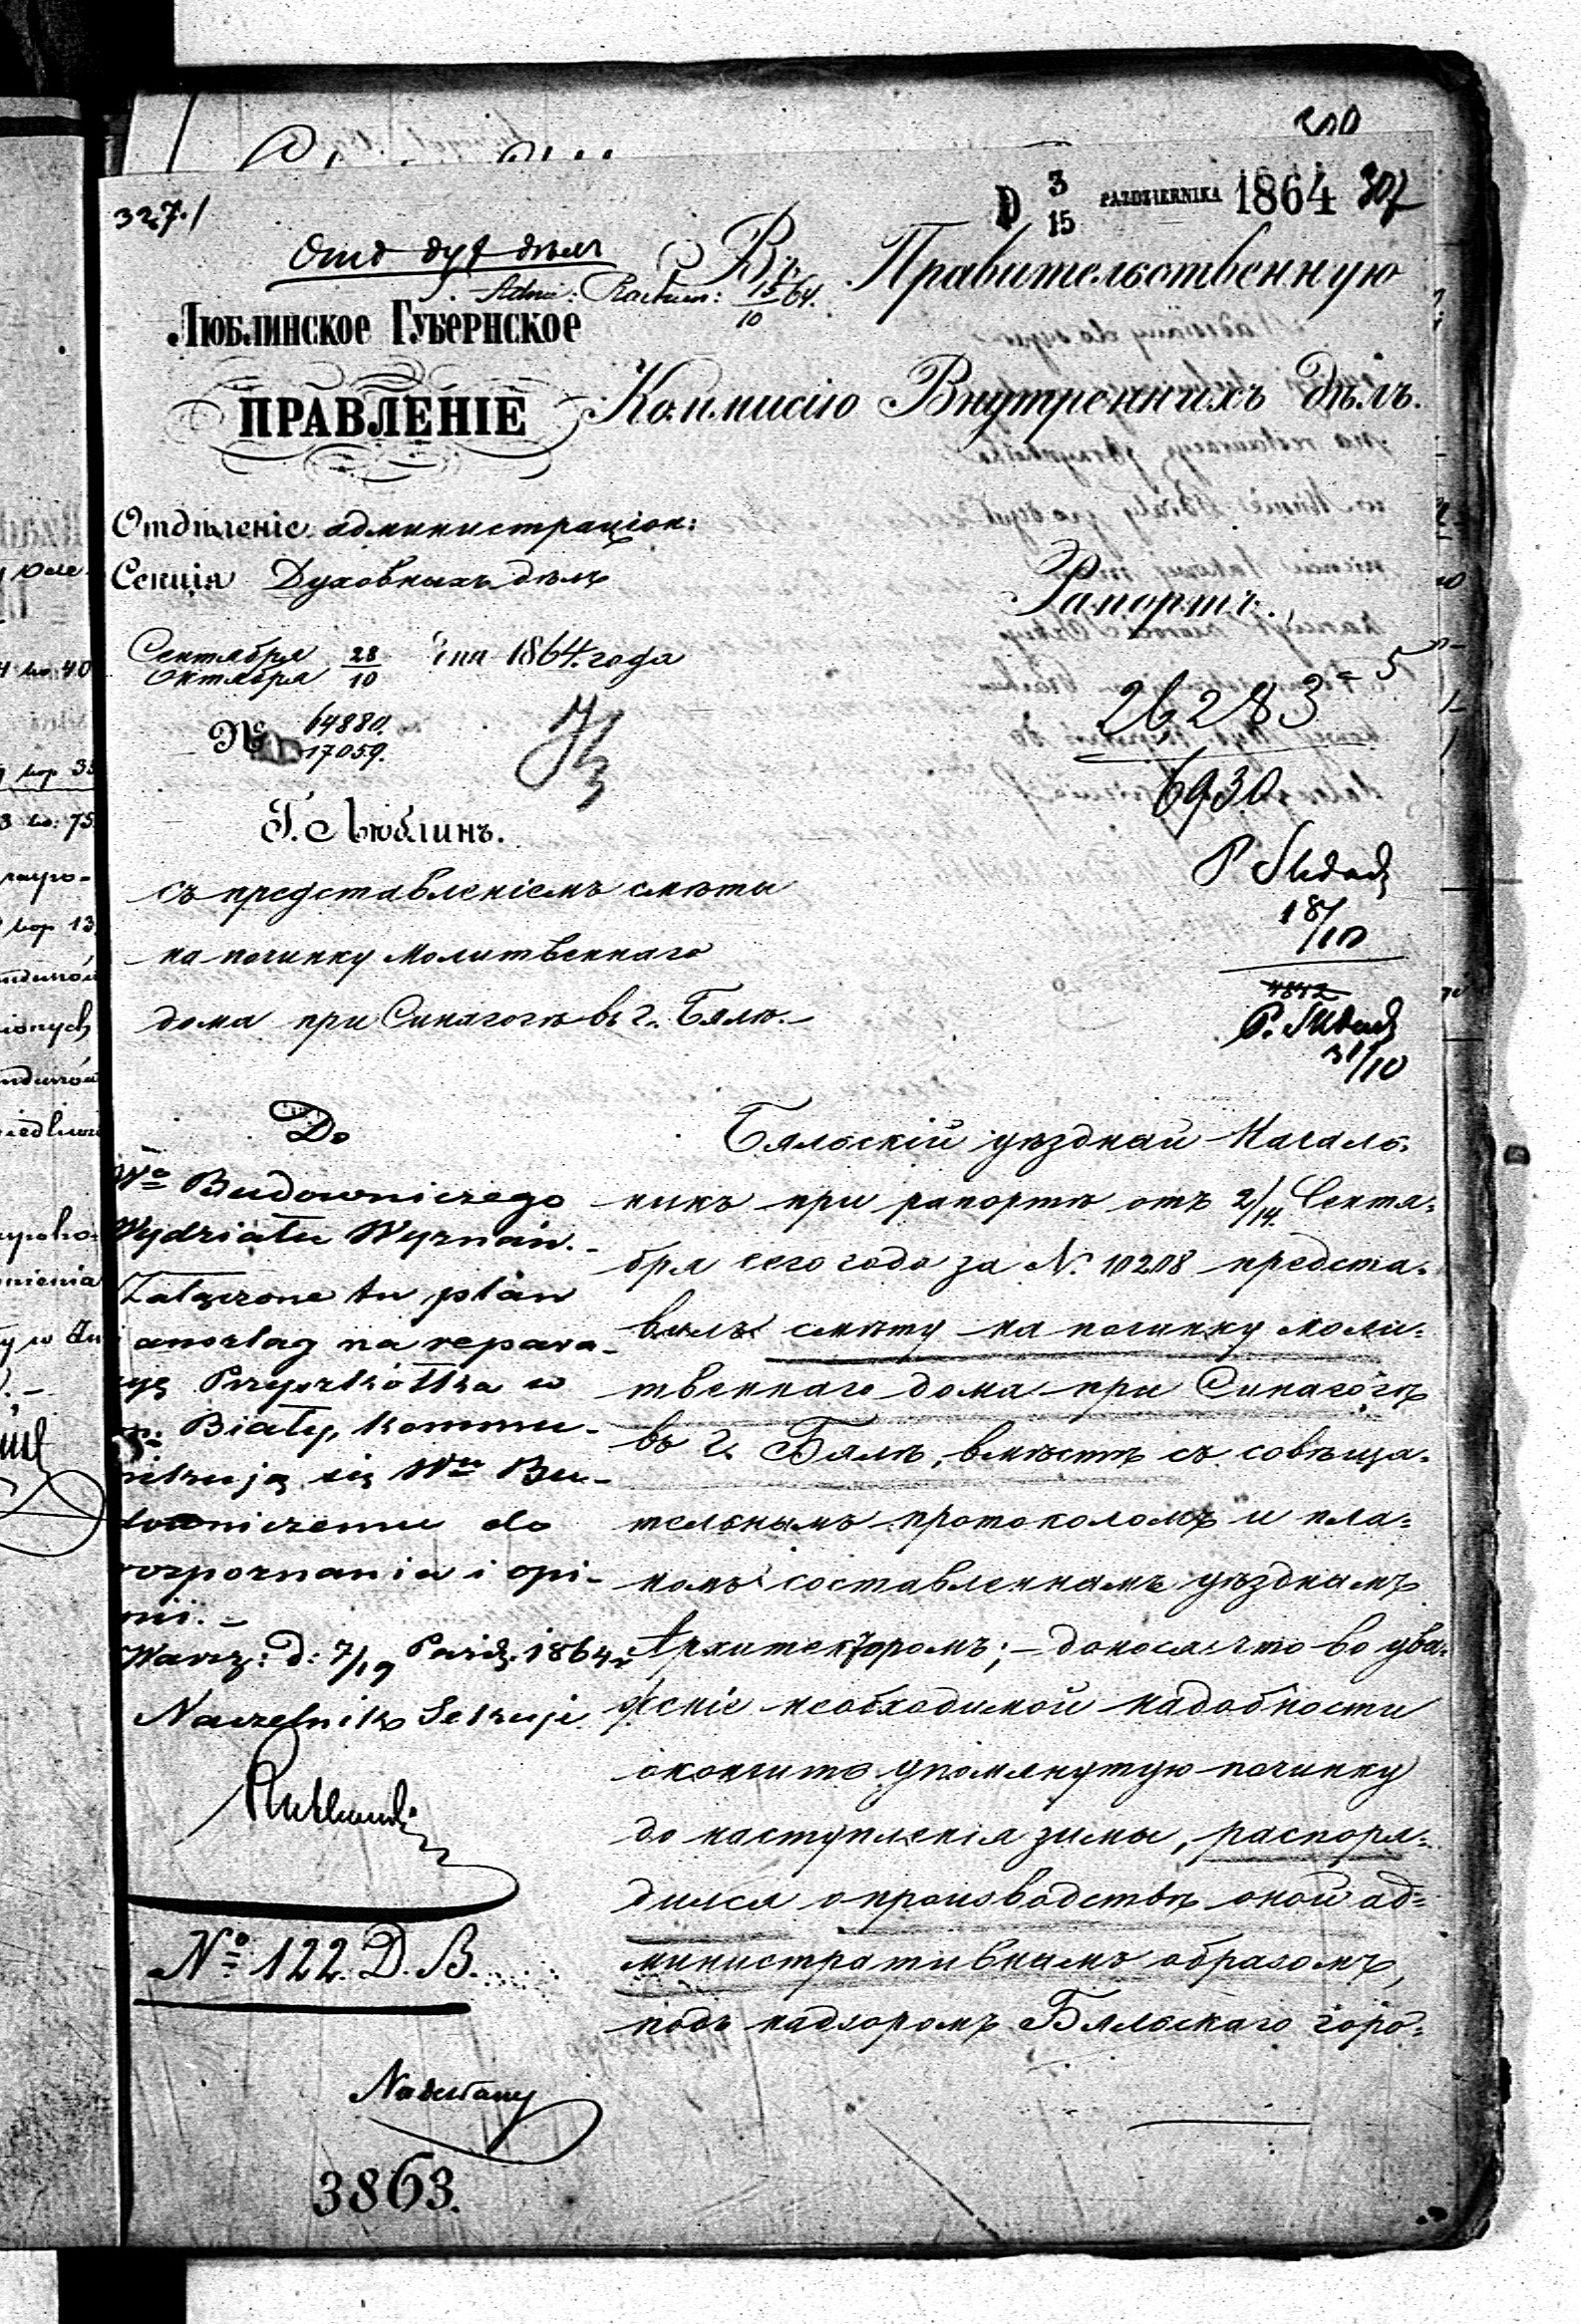 327./
D 3/15 PAŹDZIERNIKA 1864 307
Отд дух дѣлъ
15/10 64.
Въ Правительственную
Коммисію Внутреннихъ Дѣлъ.
Люблинское Губернское
ПРАВЛЕНІЕ
Отдѣленіе администраціон:
Секція Духовныхъ дѣлъ
Сентября 28
Октября 10
дня 1864. года
№ 64880.
17059.
Г. Люблинъ.
съ представленіемъ смѣты
на починку Молитвеннаго
дома при Синагогѣ въ г. Бялѣ.
Рапортъ.
26,283
6930
18/10
31/10
Do
Wo Budowniczego
Wydziału Wyznań.
Załączone tu plan
i anszlag na repara-
cyę Przyszkółka w
m. Biały, kommu-
nikuję się Wmu Bu-
downiczemu do
rozpoznania i opi-
nii.
Warsz: d: 7/19 Paźdz. 1864 r.
Naczelnik Sekcji
No 122. D. B.
Nadesłany
3863.
Бяльскій уѣздный Началь-
никъ при рапортѣ отъ 2/14. Сентя-
бря сего года за N. 10208 предста-
вилъ смѣту на починку моли-
твеннаго дома при Синагогѣ
въ г. Бялѣ, вмѣстѣ съ совѣща-
тельнымъ протоколомъ и пла-
номъ составленнымъ уѣзднымъ
Архитекторомъ; – донося что во ува-
женіе необходимой надобности
окончить упомянутую починку
до наступленія зимы, распоря-
дился о производствѣ оной ад-
министративнымъ образомъ,
подъ надзоромъ Бяльскаго горо-